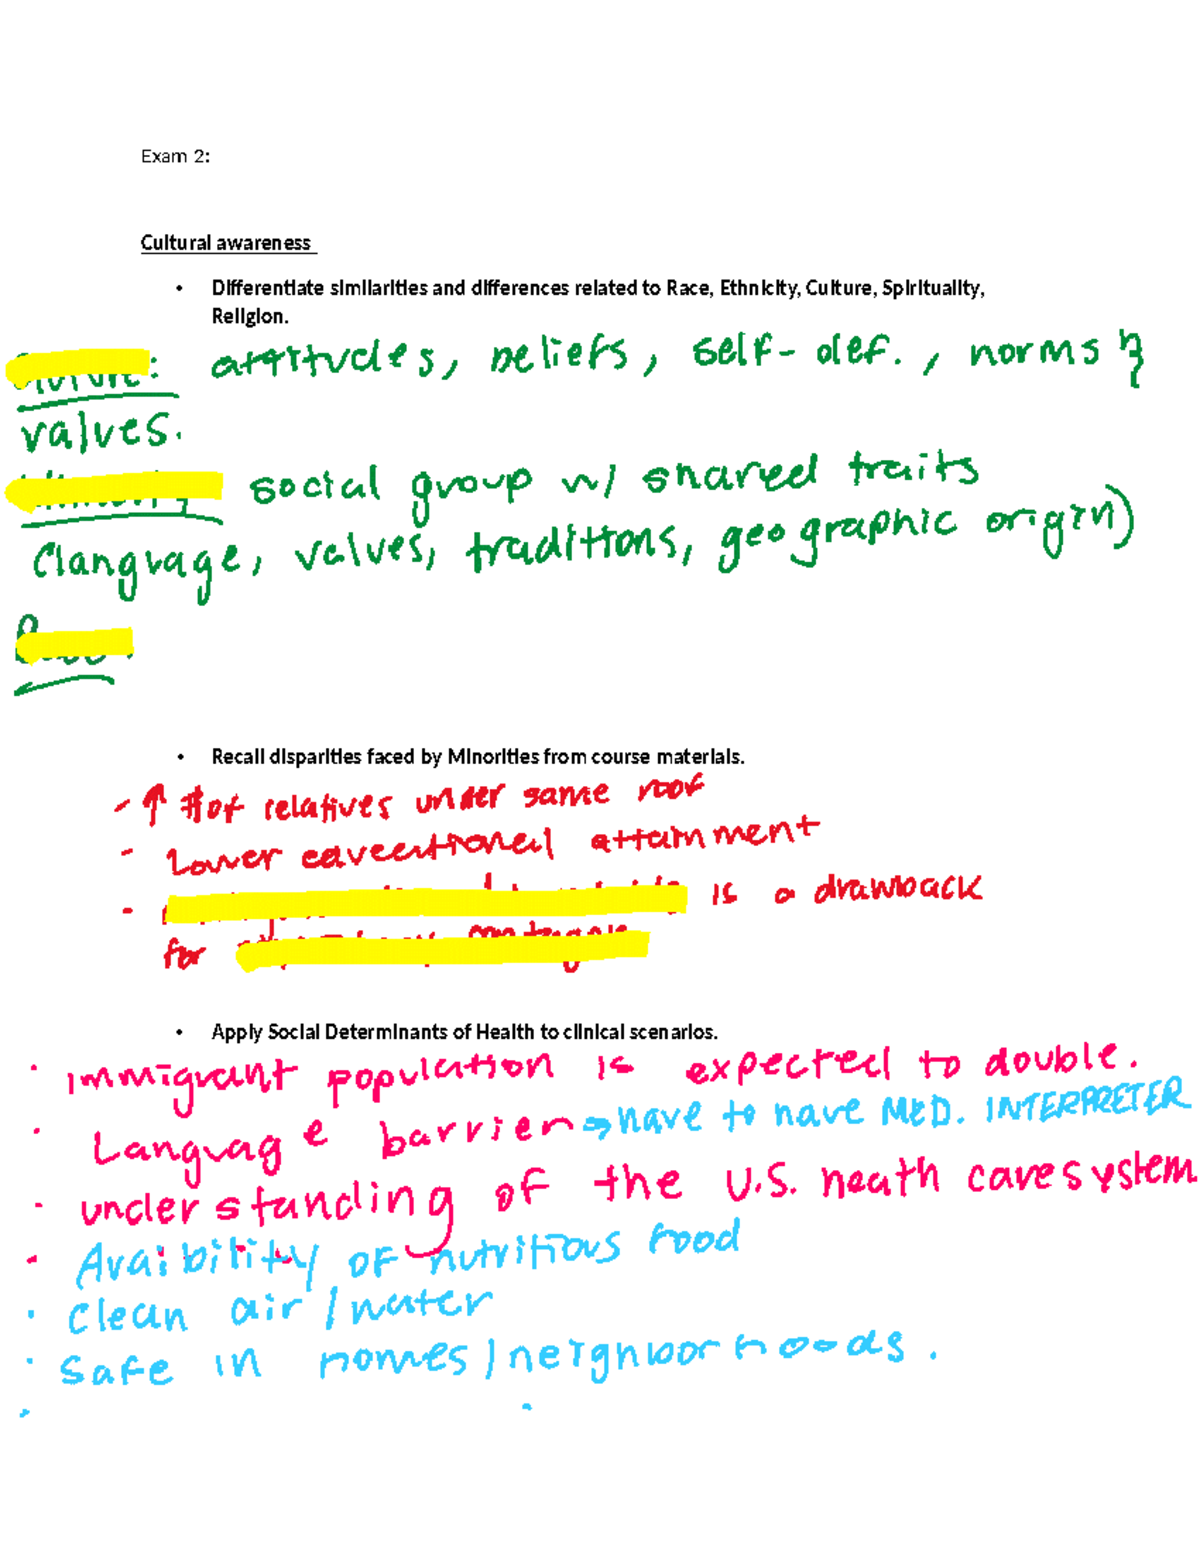 Exam 2:
Cultural awareness
• Differentiate similarities and differences related to Race, Ethnicity, Culture, Spirituality,
Religion.
: attitudes, beliefs, self-def., norms &
values.
social group w/ shared traits
(language, values, traditions, geographic origin)
• Recall disparities faced by Minorities from course materials.
- ↑ # of relatives under same roof
- Lower educational attainment
- is a drawback
for
• Apply Social Determinants of Health to clinical scenarios.
· immigrant population is expected to double.
· Language barrier → have to have MED. INTERPRETER
· understanding of the U.S. heath care system.
· Avaibility of nutritious food
· Clean air / water
· Safe in homes / neighborhoods.